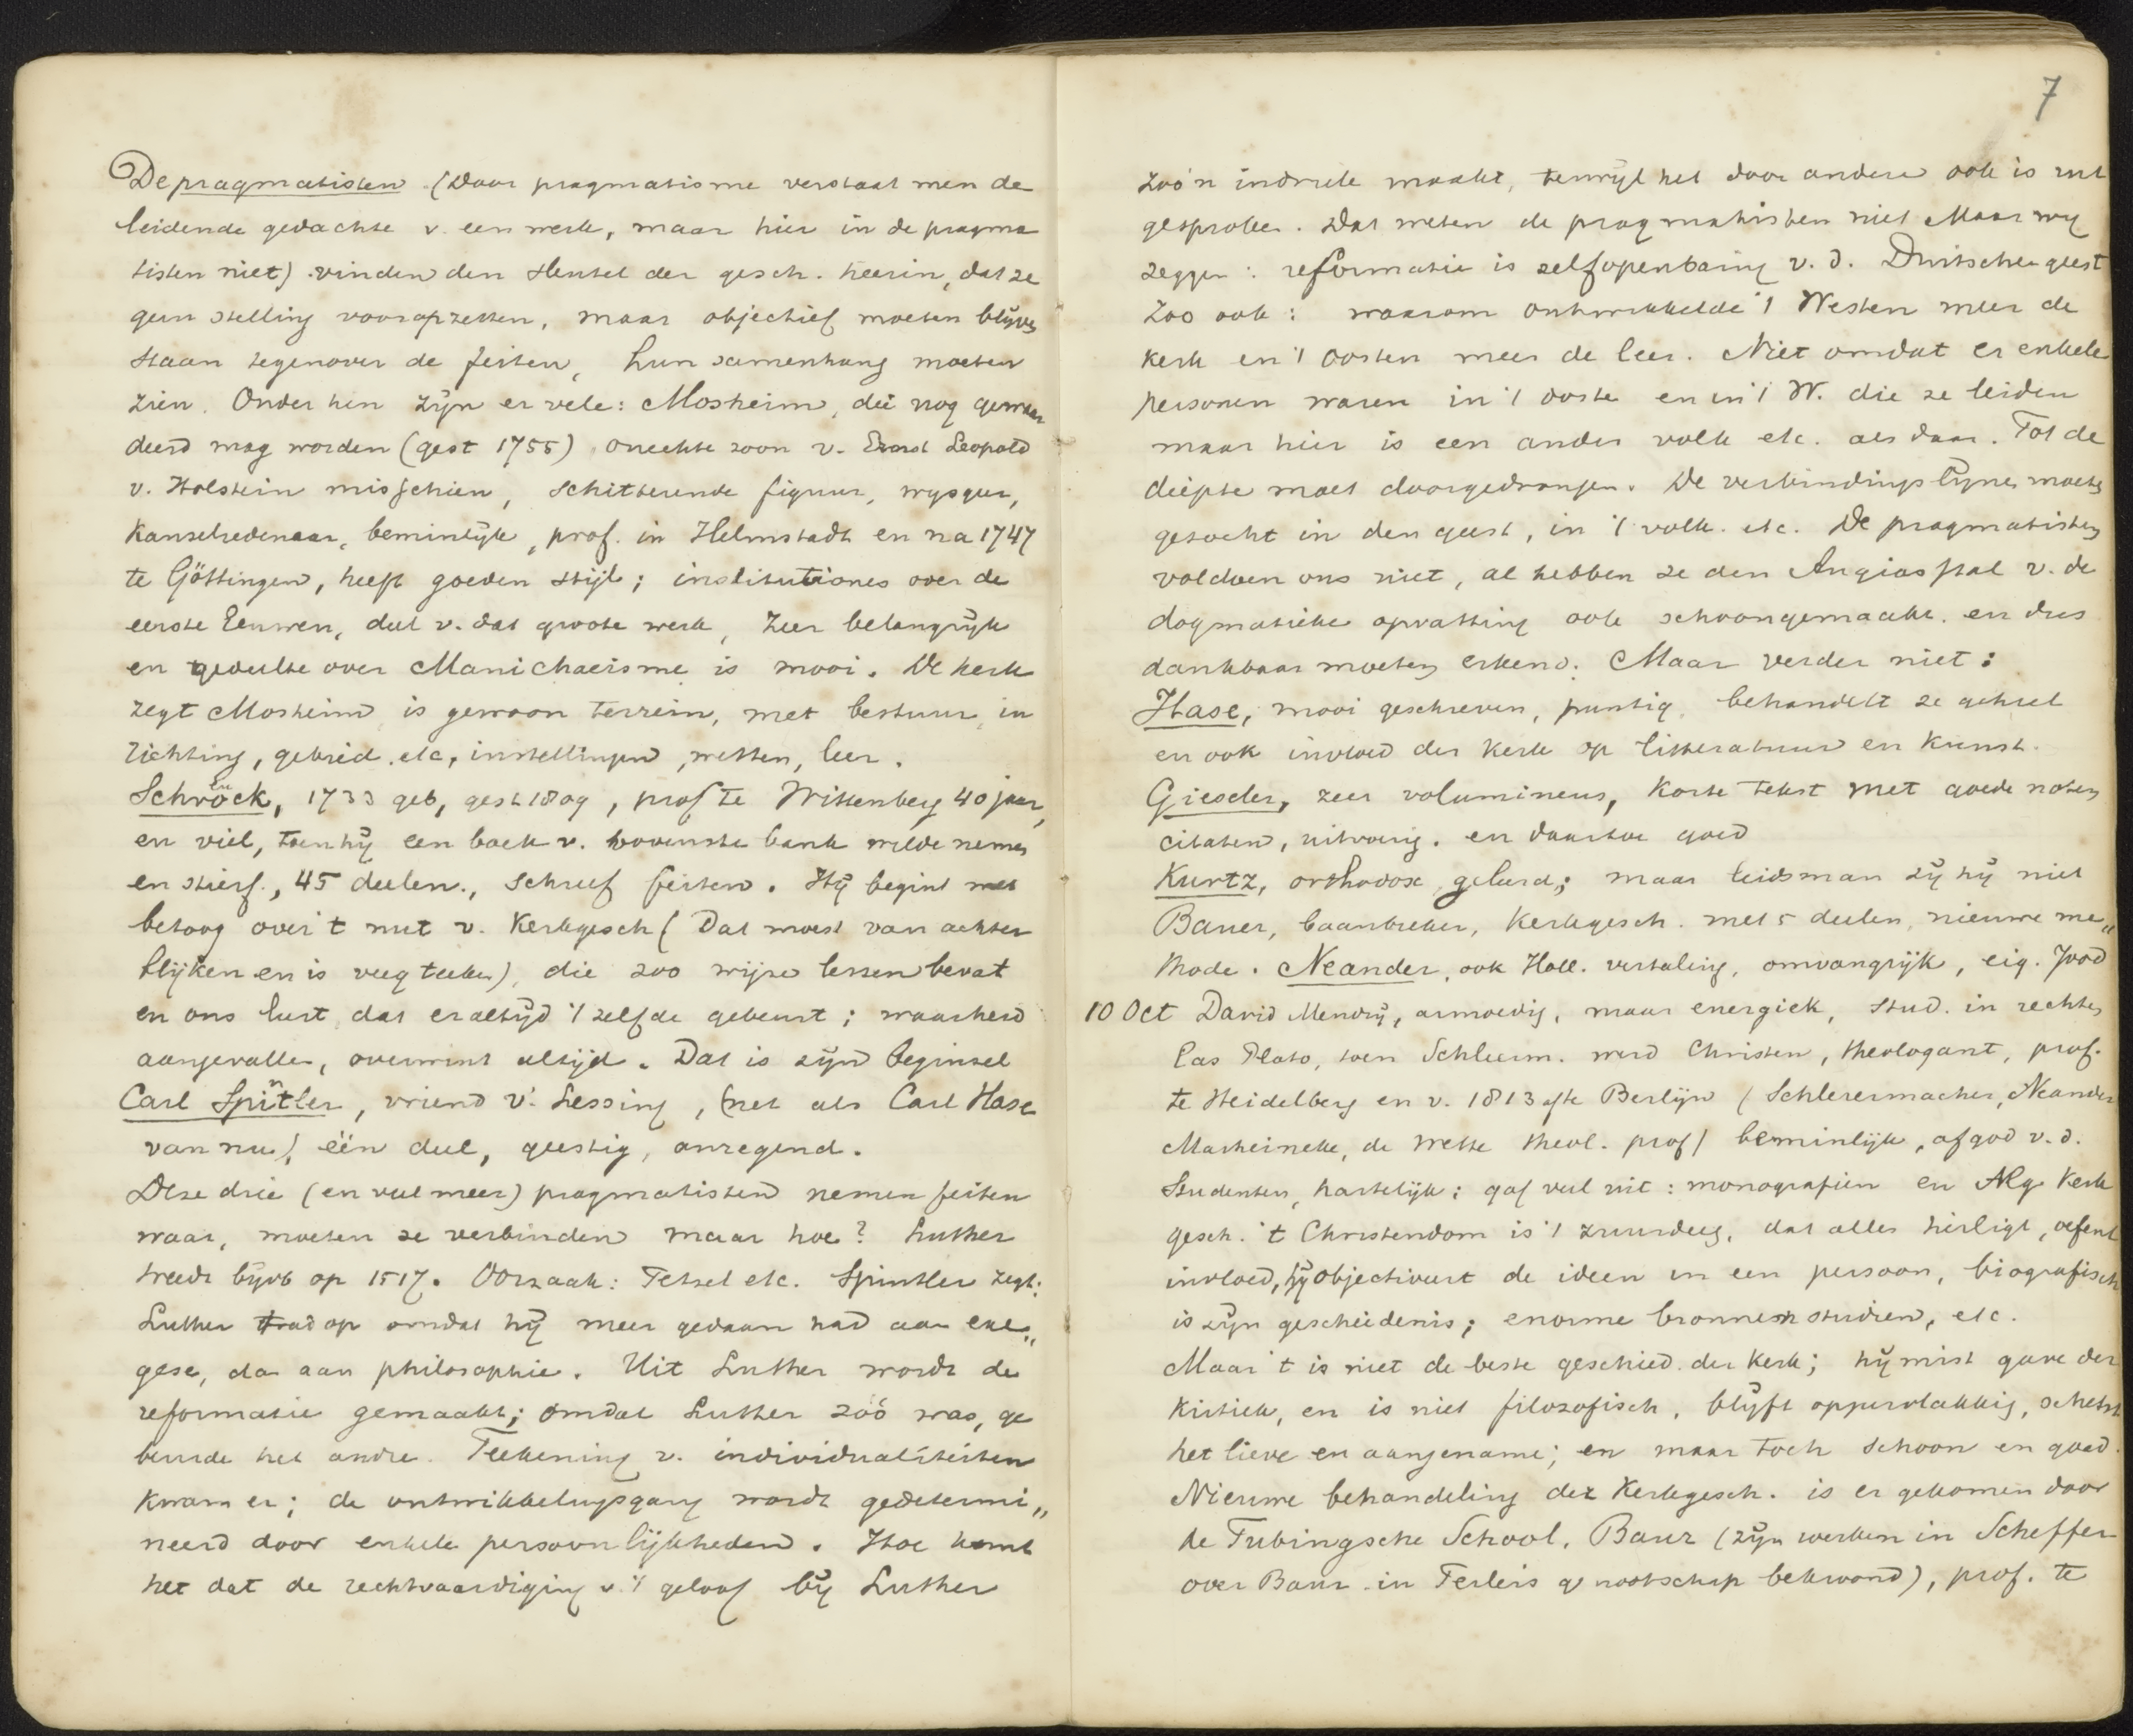 De pragmatisten (Door pragmatisme verstaat men de
leidende gedachte v. een werk, maar hier in de pragma
tisten niet) vinden den sleutel der gesch. hierin, dat ze
geen stelling vooropzetten, maar objectief moeten blijven
staan tegenover de feiten, hun samenhang moeten
zien. Onder hen zijn er vele: Mosheim, die nog gewaar
deerd mag worden (gest 1755) onechte zoon v. Ernst Leopold
v. Holstein misschien, schitterende figuur, wijsgeer,
kanselredenaar, beminlijk, prof. in Helmstadt en na 1747
te Göttingen, heeft goeden stijl; institutiones over de
eerste Eeuwen, deel v. dat groote werk, zeer belangrijk
en gedeelte over Manichaeisme is mooi. De kerk
zegt Mosheim is gewoon terrein, met bestuur, in
richting, gebied etc, instellingen, wetten, leer.
Schröck, 1733 geb, gest 1809, prof te Wittenberg 40 jaar,
en viel, toen hij een boek v. bovenste bank wilde nemen
en stierf, 45 deelen, schreef feiten. Hij begint met
betoog over 't nut v. Kerkgesch (Dat moest van achter
blijken en is veeg teeken), die zoo wijze lessen bevat
en ons leert, dat er altijd 't zelfde gebeurt; waarheid
aangevallen, overwint altijd. Dat is zijn beginsel
Carl Spitler, vriend v. Lessing, (net als Carl Hase
van nu), één deel, geestig, anregend.
Deze drie (en veel meer) pragmatisten nemen feiten
waar, moeten ze verbinden maar hoe? Luther
treedt bijvb op 1517. Oorzaak: Tetzel etc. Spintler zegt:
Luther trad op omdat hij meer gedaan had aan exe„
gese, dan aan philosophie. Uit Luther wordt de
reformatie gemaakt; omdat Luther zoó was, ge
beurde het andre. Teekening v. individualiteiten
kwam er; de ontwikkelingsgang wordt gedetermi„
neerd door enkele persoonlijkheden. Hoe komt
het dat de rechtvaardiging v. 't geloof bij Luther
7
zoo'n indruk maakt, terwijl het door andere ook is uit
gesproken. Dat weten de pragmatisten niet Maar wij
zeggen: reformatie is zelfopenbaring v. d. Duitschen geest
Zoo ook: waarom ontwikkelde 't Westen meer de
kerk en 't Oosten meer de leer. Niet omdat er enkele
personen waren in 't ooste en in 't W. die ze leiden
maar hier is een ander volk etc. als daar. Tot de
diepte moet doorgedrongen. De verbindingslijnen moeten
gezocht in den geest, in 't volk. etc. De pragmatisten
voldoen ons niet, al hebben ze den Augiasstal v. de
dogmatieke opvatting ook schoongemaakt. en dus
dankbaar moeten erkend. Maar verder niet:
Hase, mooi geschreven, puntig, behandelt ze geheel
en ook invloed der kerk op litteratuur en kunst.
Gieseler, zeer volumineus, korte tekst met goede noten
citaten, uitvoerig. en daartoe goed
Kurtz, orthodox, geleerd; maar leidsman zij hij niet
Bauer, baanbreker, kerkgesch. met 5 deelen, nieuwe me„
thode. Neander, ook Holl. vertaling, omvangrijk, eig. Jood
10 Oct David Mendij, armoedig, maar energiek, stud. in rechten
las Plato, toen Schleierm. werd Christen, theologant, prof.
te Heidelberg en v. 1813 af te Berlijn (Schleiermacher, Neander
Marheineke, de Wette theol. prof) beminlijk, afgod v. d.
Studenten, hartelijk; gaf veel uit: monografiën en Alg. Kerk
gesch. 't Christendom is 't zuurdeeg, dat alles heiligt, oefent
invloed, hij objectiveert de ideen in een persoon, biografisch
is zijn geschiedenis; enorme bronnenstudien, etc.
Maar 't is niet de beste geschied. der kerk; hij mist gave der
kritiek, en is niet filozofisch, blijft oppervlakkig, schetst
het lieve en aangename; en maar toch schoon en goed.
Nieuwe behandeling der Kerkgesch. is er gekomen door
de Tubingsche School. Baur (zijn werken in Scheffer
over Baur in Teylers genootschap bekroond), prof. te